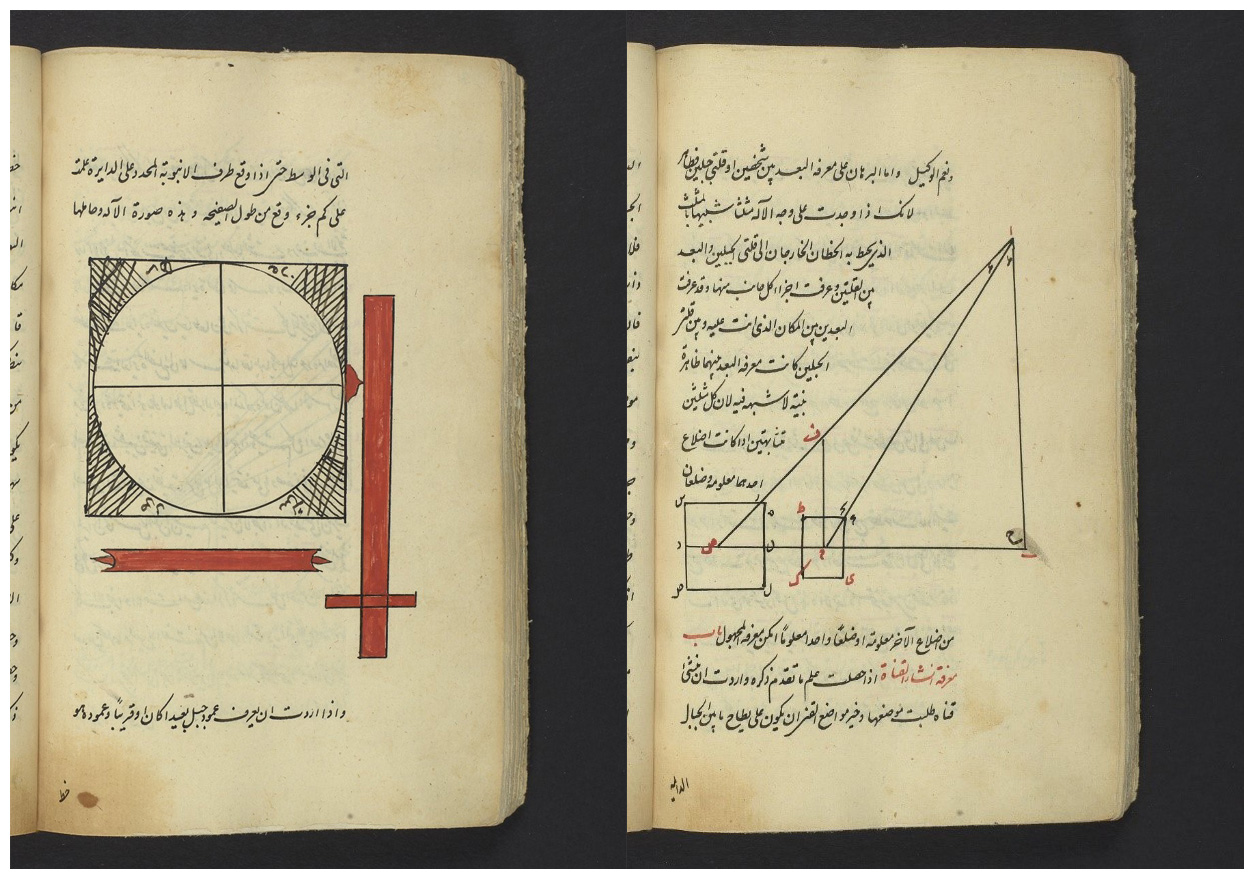 التى فى الوسط حتى اذا وقع طرف الانبوبة المحدد على الدايرة علمت
على كم جزء وقع من طول الصفيحه و هذه صورة الآله وصامها
واذا اردت ان يعرف عمود جبل بعيدا كان او قريباً وعموده هو
خط
ونعم الوكيل واما البرهان على معرفه البعد بين شخصين او قلتى جبلين فظاهر
لانك اذا وجدت على وجه الآله مثلثا شبيها بالمثلث
الذى يحيط به الخطان الخارجان الى قلتى الجبلين والبعد
بين القلتين وعرفت اجزا كل جانب منها وقد عرفت
البعدين بين المكان الذى انت عليه وبين قلتى
الجبلين كانت معرفه البعد بينهما ظاهرة
بينة لا شبهه فيه لان كل مثلثين
متشابهتين اذا كانت اضلاع
احدهما معلومه وضلعان
من اضلاع الآخر معلومة او ضلعاً واحدا معلوماً امكن معرفه المجهول باب
معرفة انشا القناة اذا حصلت علم ما تقدم ذكره واردت ان تنشى
قناه طلبت موضعها وخير مواضع القنى ان يكون على بطاح ما بين الجبال